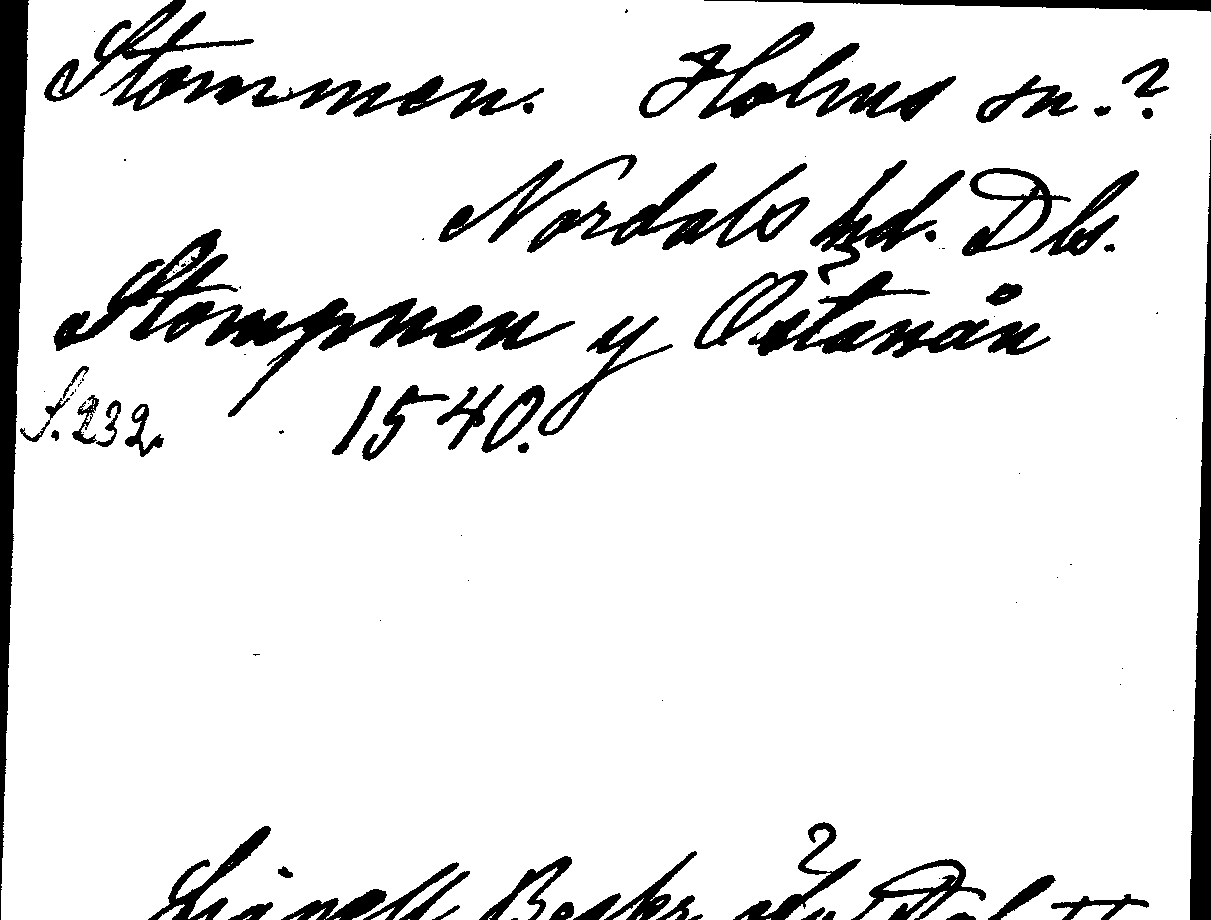 Stommen. Holms sn.?
Nordals hd. Dls.
Stompnen y Östanån
S. 232. 1540.
Lignell Beskr. Dal II